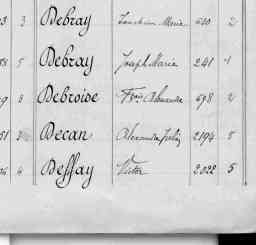 3 3 Debray Marie 2
5 Debray Joseph Marie 241 1
9 8 Debroise Frs Alexandre 698 2
51 Decan Alexandre Jules 2194 5
4 Deffay Victor 2022 5